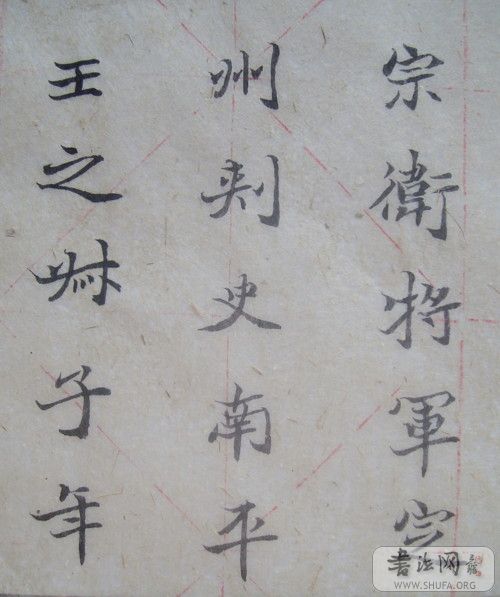 宗衛将軍定
州刺史南平
王之叔子年
書法网
WWW.SHUFA.ORG